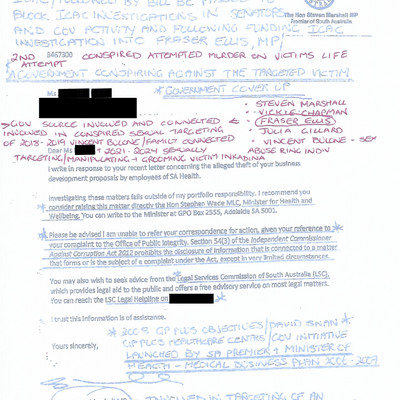 ICAC/FOLLOWED BY BILL BE PASSED TO
BLOCK ICAC INVESTIGATIONS IN SENATORS
AND GOV ACTIVITY AND FOLLOWING FUNDING ICAC
INVESTIGATION INTO FRASER ELLIS, MP/
The Hon Steven Marshall MP
Premier of South Australia
2ND CONSPIRED ATTEMPTED MURDER ON VICTIMS LIFE
ATTEMPT
A GOVERNMENT CONSPIRING AGAINST THE TARGETED VICTIM
* GOVERNMENT COVER UP
Ms
• STEVEN MARSHALL
• VICKIE CHAPMAN
FRASER ELLIS
• JULIA GILLARD
• VINCENT BULONE - SEX
ABUSE RING INDIV
GOV SOURCE INVOLVED AND CONNECTED &
INVOLVED IN CONSPIRED SEXUAL TARGETING
OF 2018-2019 VINCENT BULONE/FAMILY CONNECTED
Dear Ms + 2021-2024 SEXUALLY
TARGETING/MANIPULATING + GROOMING VICTIM INKADINA
I write in response to your recent letter concerning the alleged theft of your business
development proposals by employees of SA Health.
Investigating these matters falls outside of my portfolio responsibility. I recommend you
consider raising this matter directly the Hon Stephen Wade MLC, Minister for Health and
Wellbeing. You can write to the Minister at GPO Box 2555, Adelaide SA 5001.
Please be advised I am unable to refer your correspondence for action, given your reference to
your complaint to the Office of Public Integrity. Section 54(3) of the Independent Commissioner
Against Corruption Act 2012 prohibits the disclosure of information that is connected to a matter
that forms or is the subject of a complaint under the Act, except in very limited circumstances.
You may also wish to seek advice from the Legal Services Commission of South Australia (LSC),
which provides legal aid to the public and offers a free advisory service on most legal matters.
You can reach the LSC Legal Helpline on
I trust this information is of assistance.
Yours sincerely,
* 2008 GP PLUS OBJECTIVES/DAVID SWAN *
GP PLUS HEALTHCARE CENTRE/GOV INITIATIVE
LAUNCHED BY SA PREMIER + MINISTER OF
HEALTH - MEDICAL BUSINESS PLAN 2006-2009
INVOLVED IN TARGETING OF AN